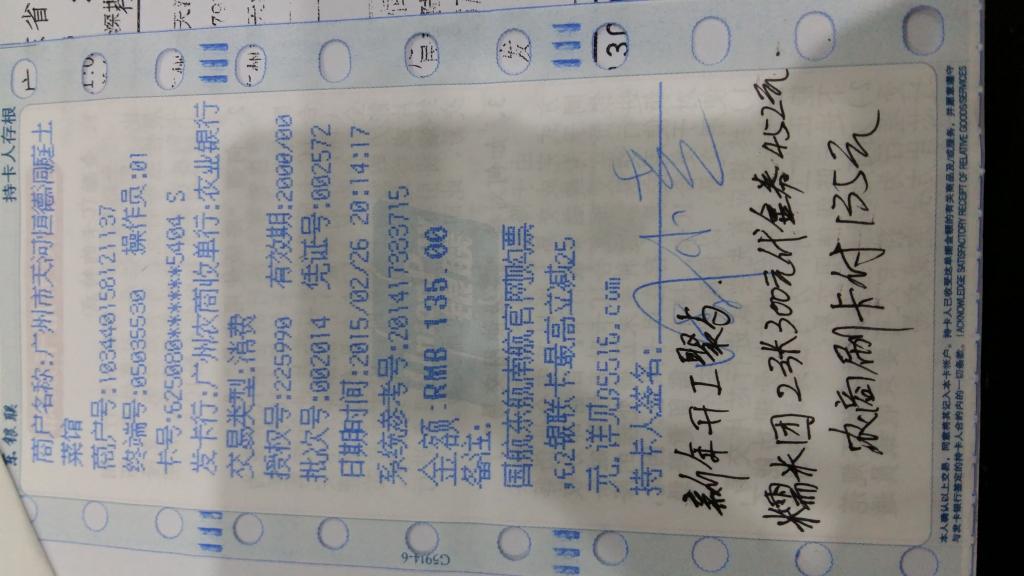 持卡人存根
商户名称:广州市天河恒德润庭土
菜馆
商户号:103440158121137
终端号:05035530 操作员:01
卡号:625080*********5404 S
发卡行:广州农商收单行:农业银行
交易类型:消费
授权号:225990 有效期:2000/00
批次号:002014 凭证号:002572
日期时间:2015/02/26 20:14:17
系统参考号:201417333715
金额:RMB 135.00
备注:
国航东航南航官网购票
,62银联卡最高立减25
元.详见95516.com
持卡人签名:
新年开工聚向.
糯米团2张300元代金券452元.
农商刷卡付135元
本人确认以上交易,同意将其记入本卡帐户,持卡人已收受这是册金额的有关商品/或服务,并愿意遵守
与发卡银行签定的持卡人合约内的一切条款。I ACKNOWLEDGE SATISFACTORY RECEIPT OF RELATIVE GOODS/SERVICES
G5914-6